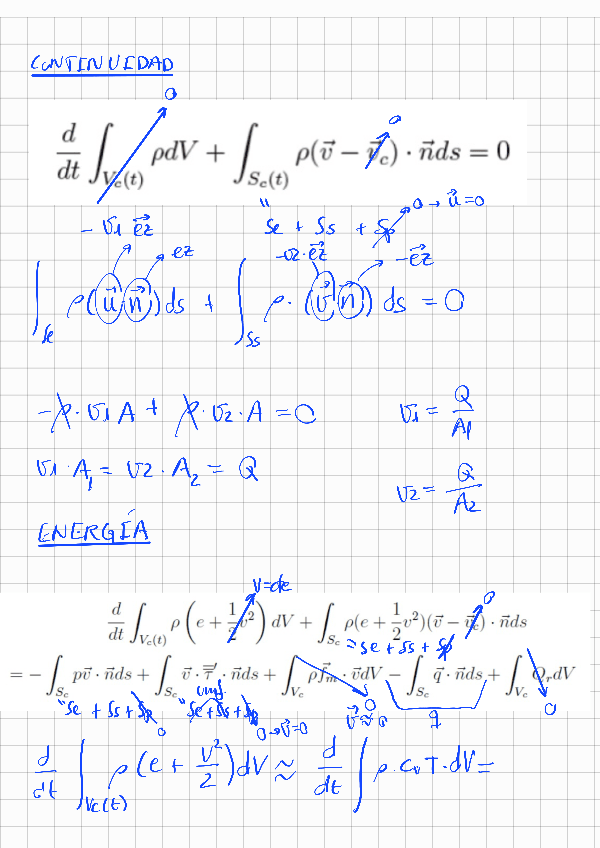 CONTINUIDAD
0 0
d/dt ∫_{V_c(t)} ρdV + ∫_{S_c(t)} ρ(v⃗ − v⃗_c) · n⃗ds = 0
" 0 → u⃗=0
- v1 e⃗z Se + Ss + Sp
ez -v2·e⃗z -e⃗z
∫_{Se} ρ(u⃗ n⃗) ds + ∫_{Ss} ρ · (v⃗ n⃗) ds = 0
-ρ · v1 A + ρ · v2 · A = 0 v1 = Q/A1
v1 · A1 = v2 · A2 = Q v2 = Q/A2
ENERGÍA
0
d/dt ∫_{V_c(t)} ρ(e + 1/2 v²) dV + ∫_{S_c} ρ(e + 1/2 v²)(v⃗ − v⃗_c) · n⃗ds
= Se + Ss + Sp
= − ∫_{S_c} pv⃗ · n⃗ds + ∫_{S_c} v⃗ · τ̿' · n⃗ds + ∫_{V_c} ρf⃗_m · v⃗dV − ∫_{S_c} q⃗ · n⃗ds + ∫_{V_c} Q_r dV
"Se + Ss + Sp "Se + Ss + Sp 0 q 0
0 0 → v⃗=0 v⃗ ≈ 0
d/dt ∫_{Vc(t)} ρ (e + v²/2) dV ≈ d/dt ∫ ρ · cv T · dV =